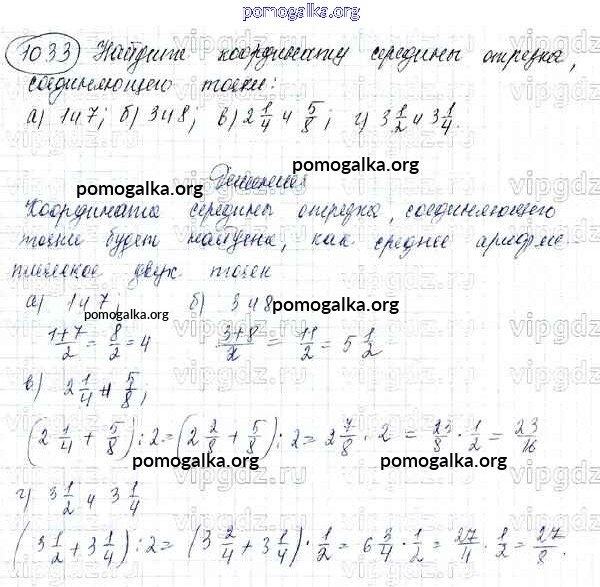 pomogalka.org
1033 Найдите координату середины отрезка,
соединяющего точки:
а) 1 и 7; б) 3 и 8; в) 2 1/4 и 5/8; г) 3 1/2 и 3 1/4.
pomogalka.org
Решение
pomogalka.org
Координата середины отрезка, соединяющего
точки будет найдена, как среднее арифме-
тическое двух точек
а) 1 и 7; б) 3 и 8
pomogalka.org pomogalka.org
(1+7)/2 = 8/2 = 4 (3+8)/2 = 11/2 = 5 1/2
в) 2 1/4 и 5/8;
(2 1/4 + 5/8) : 2 = (2 2/8 + 5/8) : 2 = 2 7/8 · 2 = 23/8 · 1/2 = 23/16
pomogalka.org pomogalka.org
г) 3 1/2 и 3 1/4
pomogalka.org
(3 1/2 + 3 1/4) : 2 = (3 2/4 + 3 1/4) · 1/2 = 6 3/4 · 1/2 = 27/4 · 1/2 = 27/8.
vipgdz.ru